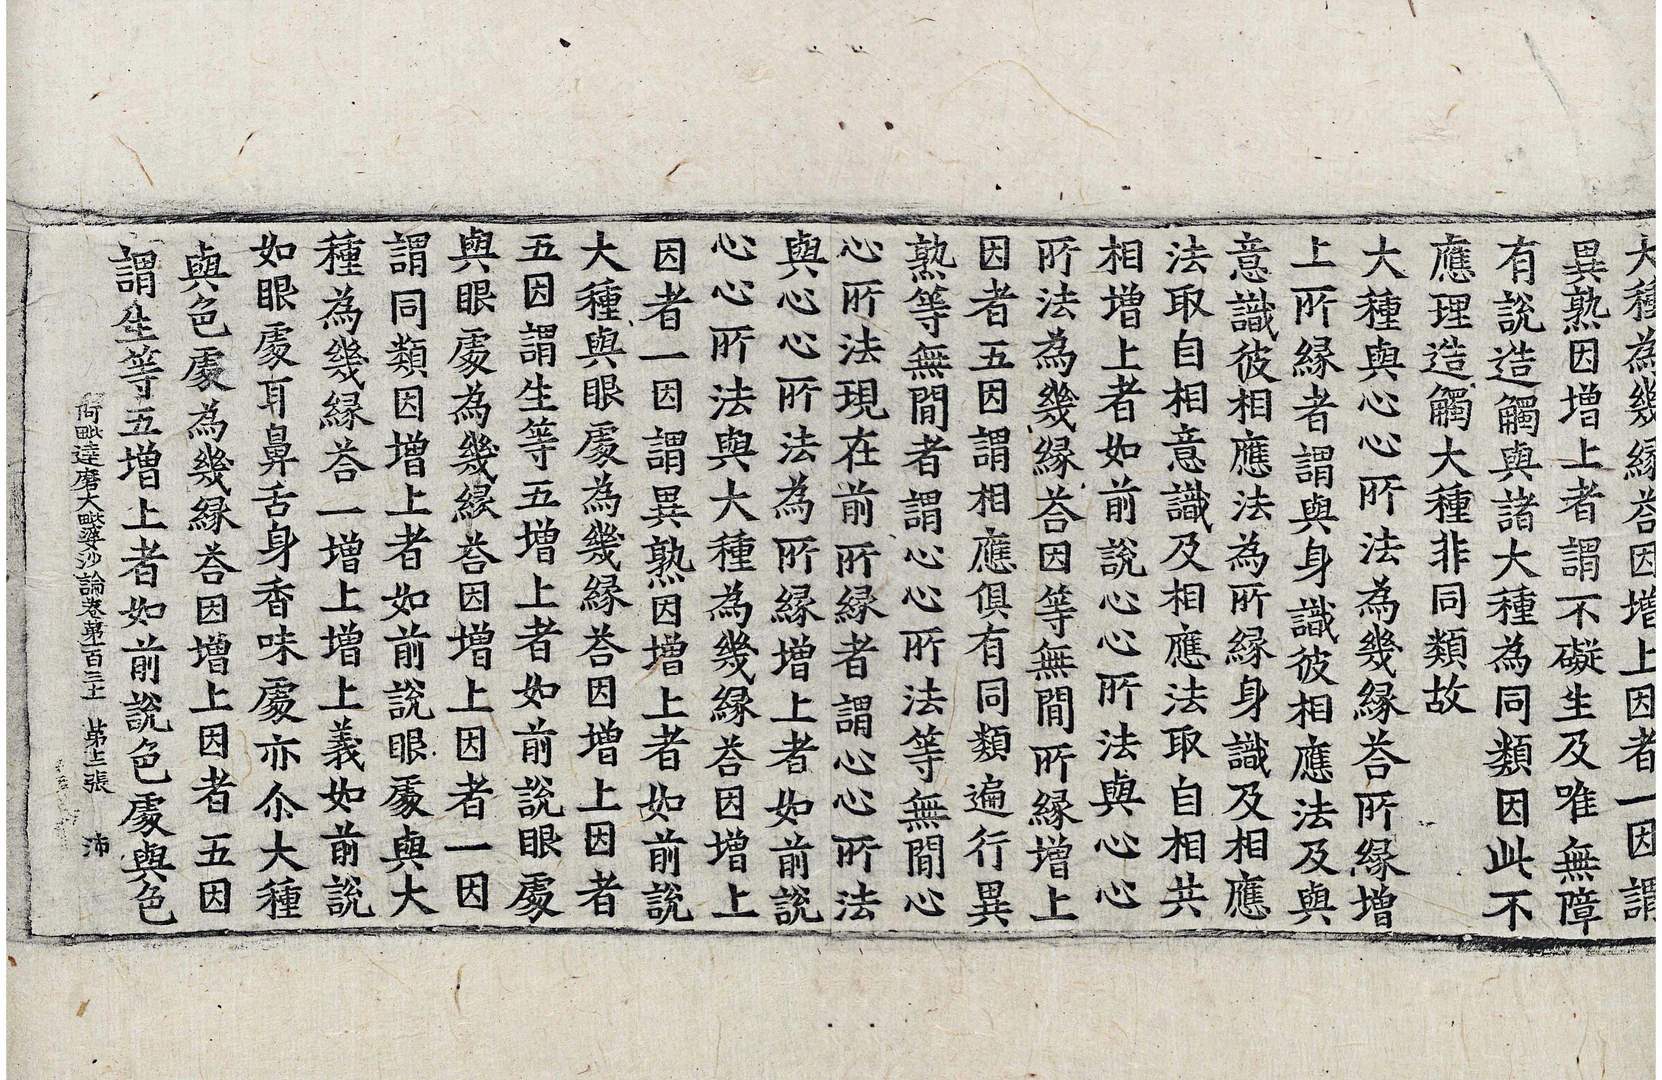 大種為幾縁荅因增上因者一因謂
異熟因增上者謂不礙生及唯無障
有說造觸與諸大種為同類因此不
應理造觸大種非同類故
大種與心心所法為幾縁荅所縁增
上所縁者謂與身識彼相應法及與
意識彼相應法為所縁身識及相應
法取自相意識及相應法取自相共
相增上者如前說心心所法與心心
所法為幾縁荅因等無間所縁增上
因者五因謂相應俱有同類遍行異
熟等無間者謂心心所法等無間心
心所法現在前所縁者謂心心所法
與心心所法為所縁增上者如前說
心心所法與大種為幾縁荅因增上
因者一因謂異熟因增上者如前說
大種與眼處為幾縁荅因增上因者
五因謂生等五增上者如前說眼處
與眼處為幾縁荅因增上因者一因
謂同類因增上者如前說眼處與大
種為幾縁荅一增上增上義如前說
如眼處耳鼻舌身香味處亦尒大種
與色處為幾縁荅因增上因者五因
謂生等五增上者如前說色處與色
阿毗達磨大毗婆沙論卷第一百三十 第十張 沛